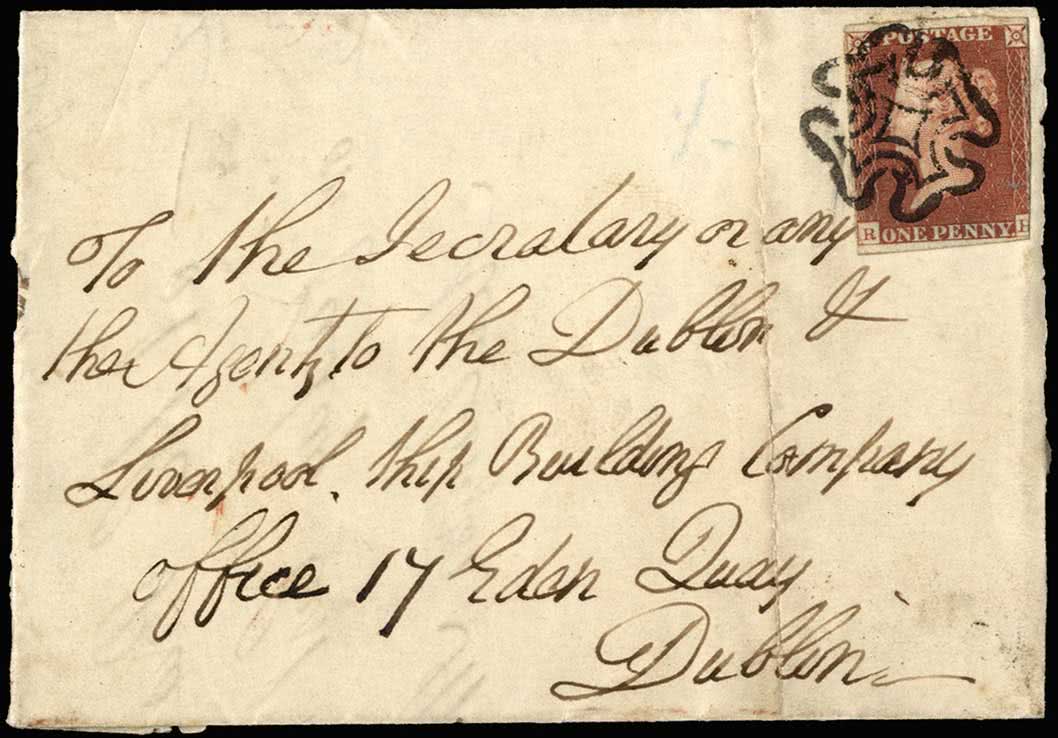 POSTAGE
R ONE PENNY
To the Secratary or any
ther Agents to the Dublin &
Liverpool. Ship Building Company
office 17 Eden Quay
Dublin